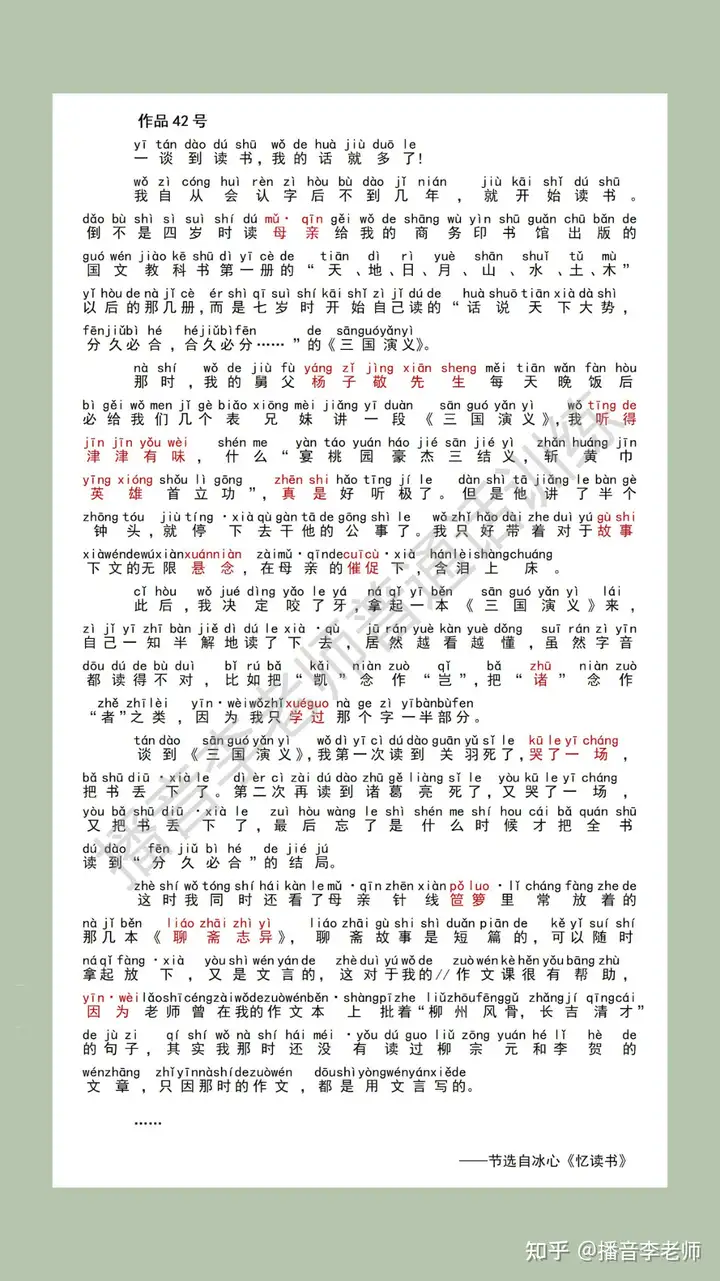 作品 42 号
yī tán dào dú shū wǒ de huà jiù duō le
一谈到读书,我的话就多了!
wǒ zì cóng huì rèn zì hòu bù dào jǐ nián jiù kāi shǐ dú shū
我自从会认字后不到几年，就开始读书。
dǎo bù shì sì suì shí dú mǔ· qīn gěi wǒ de shāng wù yìn shū guǎn chū bǎn de
倒不是四岁时读母亲给我的商务印书馆出版的
guó wén jiào kē shū dì yī cè de tiān dì rì yuè shān shuǐ tǔ mù
国文教科书第一册的“天、地、日、月、山、水、土、木”
yǐ hòu de nà jǐ cè ér shì qī suì shí kāi shǐ zì jǐ dú de huà shuō tiān xià dà shì
以后的那几册,而是七岁时开始自己读的“话说天下大势，
fēnjiǔbì hé héjiǔbìfēn de sānguóyǎnyì
分久必合，合久必分……”的《三国演义》。
nà shí wǒ de jiù fù yáng zǐ jìng xiān sheng měi tiān wǎn fàn hòu
那时，我的舅父杨子敬先生每天晚饭后
bì gěi wǒ men jǐ gè biǎo xiōng mèi jiǎng yī duàn sān guó yǎn yì wǒ tīng de
必给我们几个表兄妹讲一段《三国演义》,我听得
jīn jīn yǒu wèi shén me yàn táo yuán háo jié sān jié yì zhǎn huáng jīn
津津有味，什么“宴桃园豪杰三结义，斩黄巾
yīng xióng shǒu lì gōng zhēn shi hǎo tīng jí le dàn shì tā jiǎng le bàn gè
英雄首立功”，真是好听极了。但是他讲了半个
zhōng tóu jiù tíng ·xià qù gàn tā de gōng shì le wǒ zhǐ hǎo dài zhe duì yú gù shi
钟头，就停下去干他的公事了。我只好带着对于故事
xiàwéndewúxiànxuánniàn zàimǔ·qīndecuīcù·xià hánlèishàngchuáng
下文的无限悬念，在母亲的催促下，含泪上床。
cǐ hòu wǒ jué dìng yǎo le yá ná qǐ yī běn sān guó yǎn yì lái
此后，我决定咬了牙，拿起一本《三国演义》来，
zì jǐ yī zhī bàn jiě dì dú le xià ·qù jū rán yuè kàn yuè dǒng suī rán zì yīn
自己一知半解地读了下去，居然越看越懂，虽然字音
dōu dú de bù duì bǐ rú bǎ kǎi niàn zuò qǐ bǎ zhū niàn zuò
都读得不对，比如把“凯”念作“岂”，把“诸”念作
zhě zhīlèi yīn·wèiwǒzhǐxuéguo nà ge zì yībànbùfen
“者”之类，因为我只学过那个字一半部分。
tándào sānguóyǎnyì wǒ dì yī cì dú dào guān yǔ sǐ le kū le yī cháng
谈到《三国演义》,我第一次读到关羽死了,哭了一场，
bǎ shū diū ·xià le dì èr cì zài dú dào zhū gě liàng sǐ le yòu kū le yī cháng
把书丢下了。第二次再读到诸葛亮死了，又哭了一场，
yòu bǎ shū diū ·xià le zuì hòu wàng le shì shén me shí hou cái bǎ quán shū
又把书丢下了，最后忘了是什么时候才把全书
dú dào fēn jiǔ bì hé de jié jú
读到“分久必合”的结局。
zhè shí wǒ tóng shí hái kàn le mǔ ·qīn zhēn xiàn pǒ luo ·lǐ cháng fàng zhe de
这时我同时还看了母亲针线笸箩里常放着的
nà jǐ běn liáo zhāi zhì yì liáo zhāi gù shi shì duǎn piān de kě yǐ suí shí
那几本《聊斋志异》，聊斋故事是短篇的，可以随时
ná qǐ fàng ·xià yòu shì wén yán de zhè duì yú wǒ de zuò wén kè hěn yǒu bāng zhù
拿起放下，又是文言的，这对于我的//作文课很有帮助，
yīn·wèilǎoshīcéngzàiwǒdezuòwénběn·shàngpīzhe liǔzhōufēnggǔ zhǎngjí qīngcái
因为老师曾在我的作文本上批着“柳州风骨，长吉清才”
de jù zi qí shí wǒ nà shí hái méi ·yǒu dú guo liǔ zōng yuán hé lǐ hè de
的句子，其实我那时还没有读过柳宗元和李贺的
wénzhāng zhǐyīnnàshídezuòwén dōushìyòngwényánxiěde
文章，只因那时的作文，都是用文言写的。
……
——节选自冰心《忆读书》
播音李老师普通话训练
知乎 @播音李老师